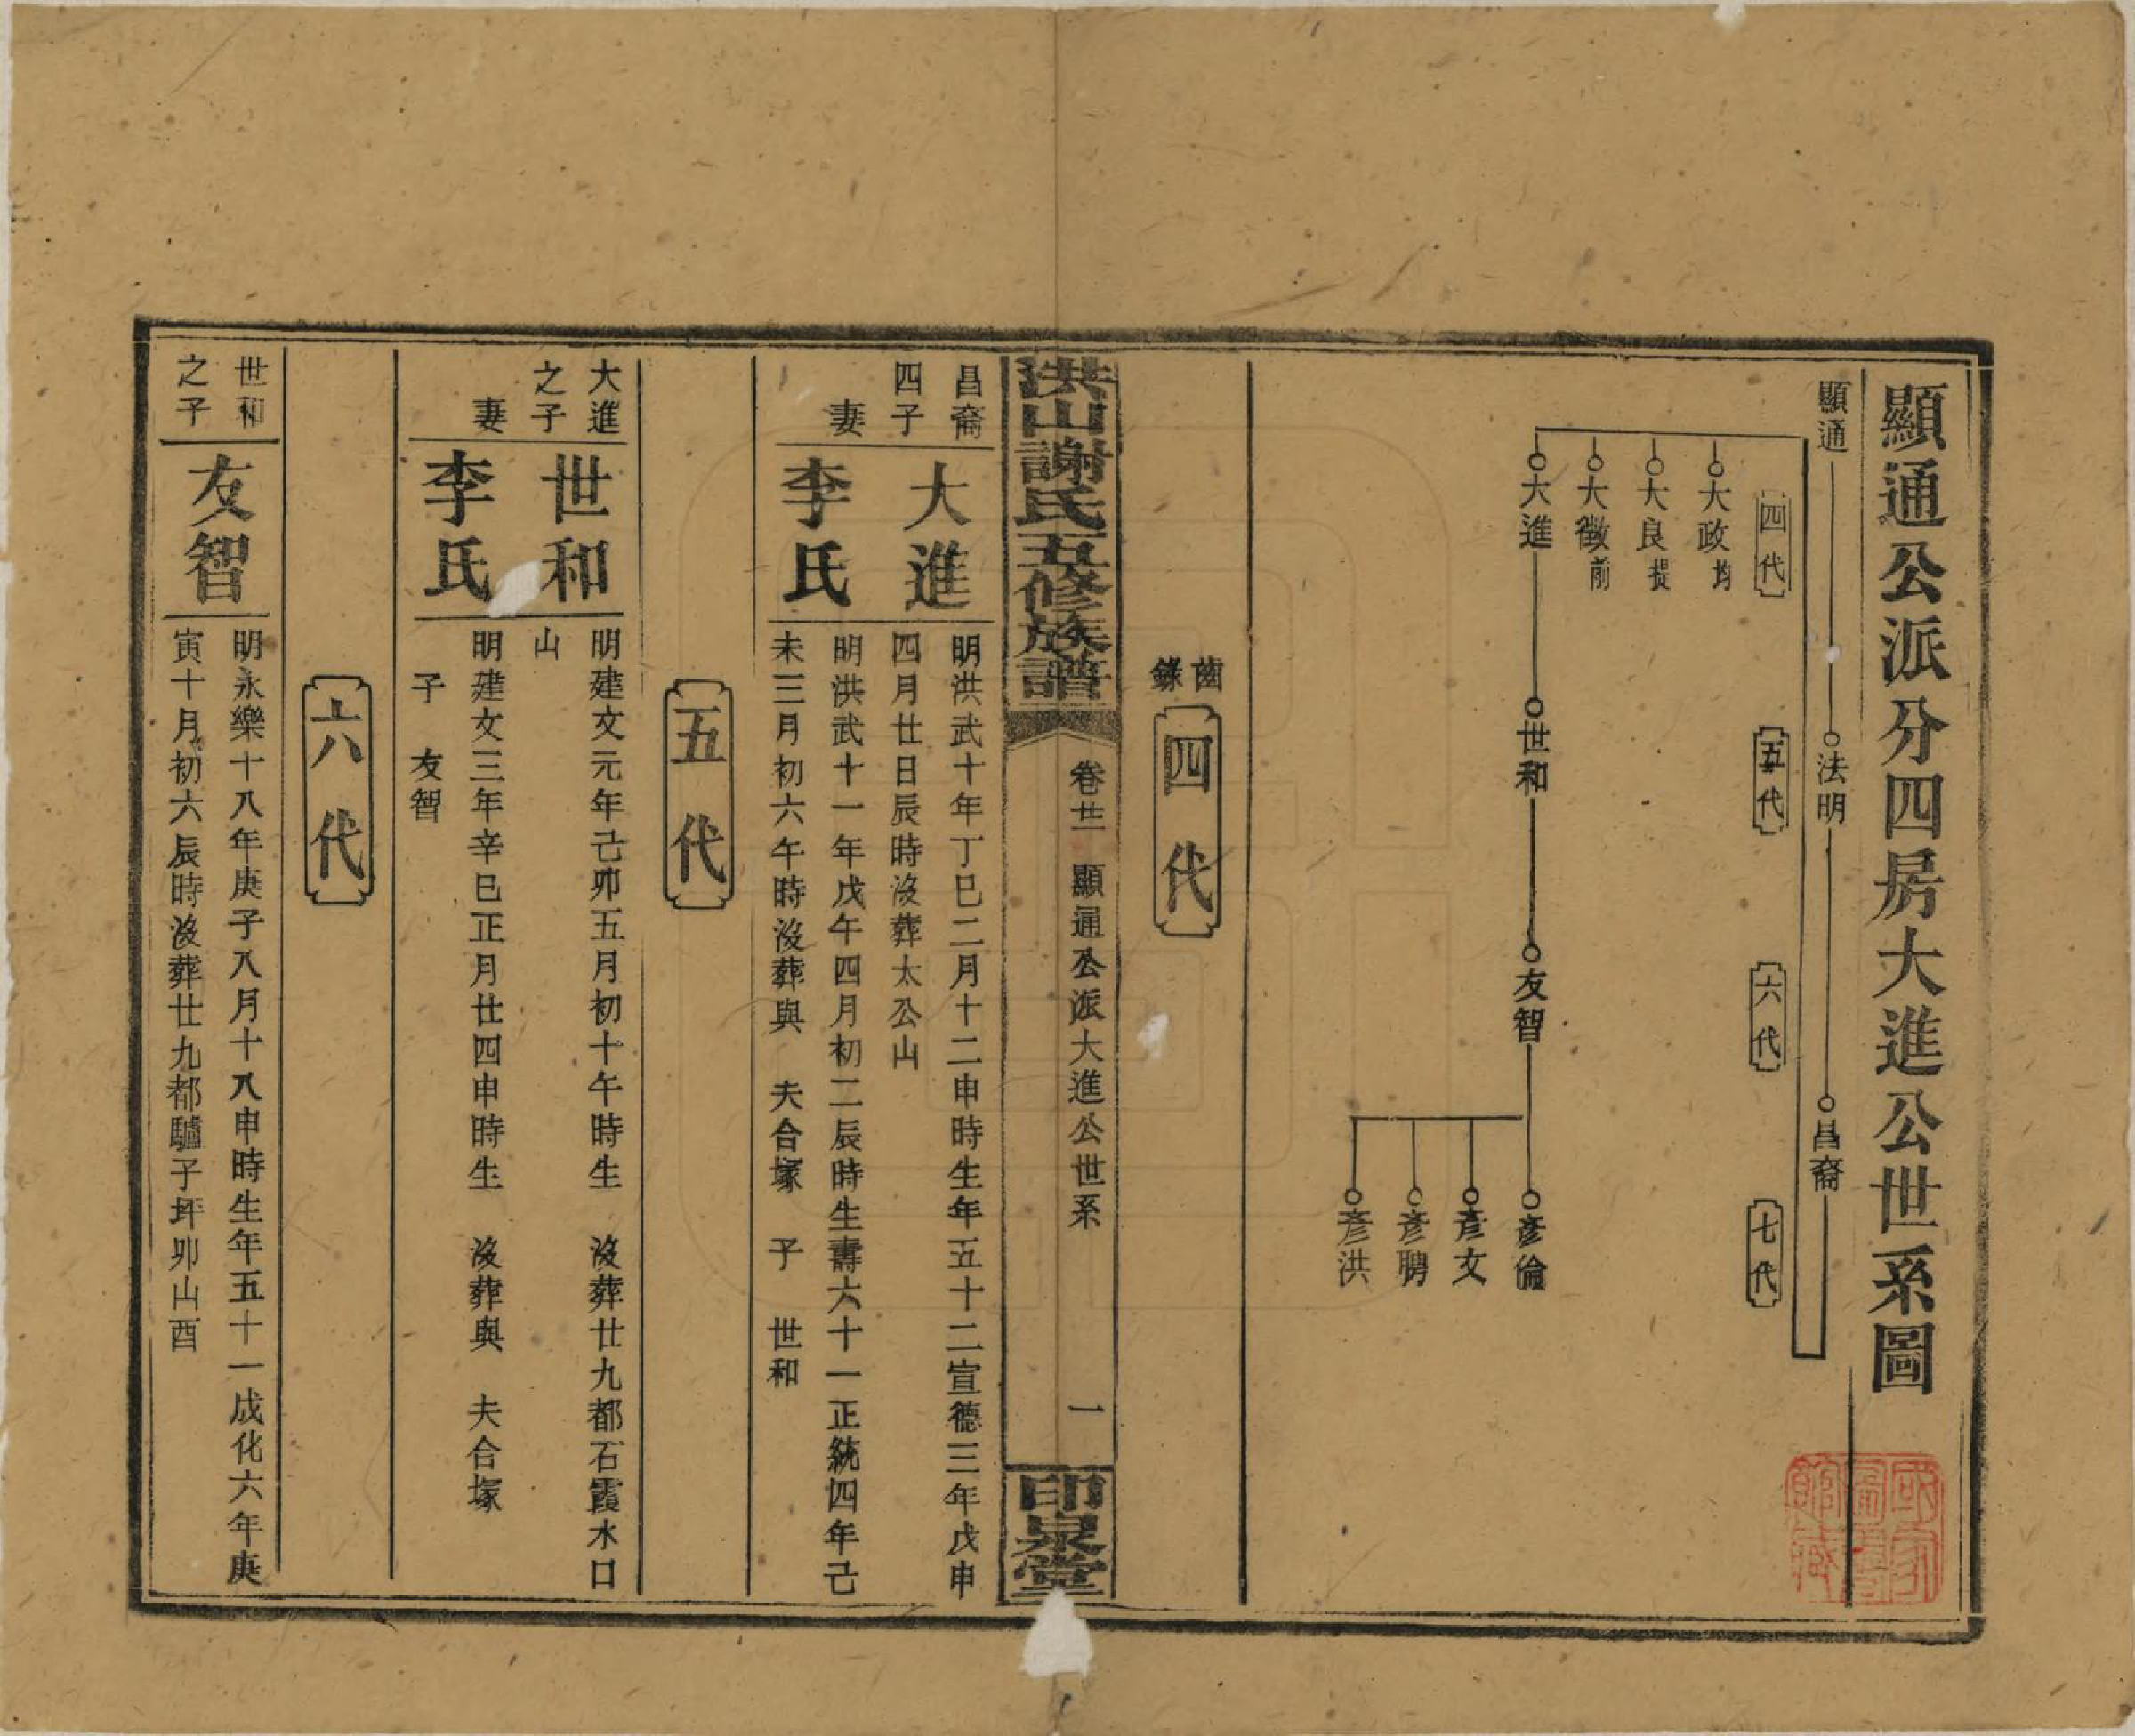 顯通公派分四房大進公世系圖
顯通
法明
昌裔
四代
五代
六代
七代
大政均
大良提
大徵前
大進
世和
友智
彥倫
彥文
彥聘
彥洪
國家圖書館藏
齒錄
四代
洪山謝氏五修族譜
卷廿一
顯通公派大進公世系
一
印泉堂
昌裔
四子
大進
明洪武十年丁巳二月十二申時生年五十二宣德三年戊申
四月廿日辰時沒葬太公山
妻
李氏
明洪武十一年戊午四月初二辰時生壽六十一正統四年己
未三月初六午時沒葬與 夫合塚 子 世和
五代
大進
之子
世和
明建文元年己卯五月初十午時生 沒葬廿九都石霞水口
山
妻
李氏
明建文三年辛巳正月廿四申時生 沒葬與 夫合塚
子 友智
六代
世和
之子
友智
明永樂十八年庚子八月十八申時生年五十一成化六年庚
寅十月初六辰時沒葬廿九都驢子坪卯山酉